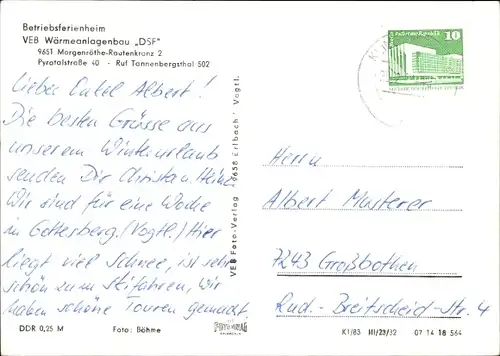 Betriebsferienheim
VEB Wärmeanlagenbau „DSF"
9651 Morgenröthe-Rautenkranz 2
Pyratalstraße 40 - Ruf Tannenbergsthal 502
Lieber Onkel Albert!
Die besten Grüsse aus
unserem Winterurlaub
senden Dir Christa u. Heinz.
Wir sind für eine Woche
in Gottesberg. (Vogtl.) Hier
liegt viel Schnee, ist sehr
schön zum Skifahren, wir
haben schöne Touren gemacht.
DDR 0,25 M
Foto: Böhme
VEB Foto-Verlag 9658 Erlbach Vogtl.
FOTO VERLAG
10
Herrn
Albert Musterer
7243 Großbothen
Rud.-Breitscheid-Str. 4
K1/83 III/23/32 07 14 18 564